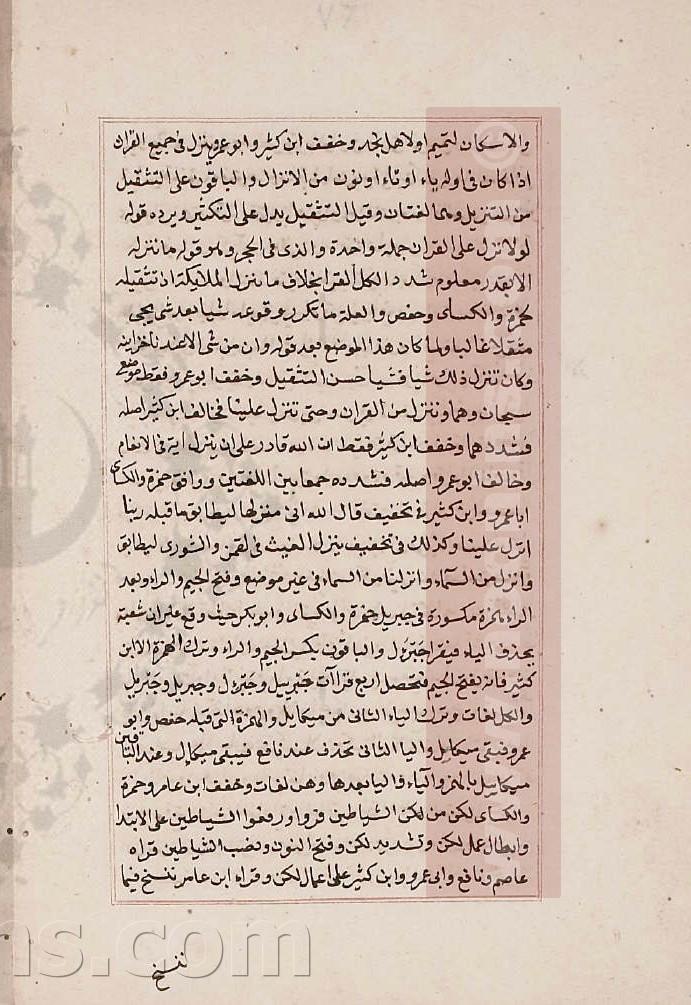 والاسكان لتميم اولاهل نجد وخفف ابن كثير وابو عمرو ينزل في جميع القران
اذا كان في اوله ياء او تاء او نون من الانزال والباقون على التثقيل
من التنزيل وهما لغتان وقيل التثقيل يدل على التكثير ويرده قوله
لولا نزل على القران جملة واحدة والذى في الحجر وهو قوله ما ننزله
الا بقدر معلوم شدد الكل القرا بخلاف ما ينزل الملايكة اذ تثقيله
لحمزة والكساى وحفص والعلة ما تكرر وقوعه شيا بعد شى يجى
مثقلا غالبا ولما كان هذا الموضع بعد قوله وان من شى الا عندنا خزاينه
وكان تنزل ذلك شيا فشيا حسن التثقيل وخفف ابو عمرو فقط موضعى
سبحان وهما وننزل من القران وحتى تنزل علينا فخالف ابن كثير اصله
فشددهما وخفف ابن كثير فقط ان الله قادر على ان ينزل اية في الانعام
وخالف ابو عمرو اصله فشدده جمعا بين اللغتين ووافق حمزة والكساى
ابا عمرو وابن كثير في تخفيف قال الله انى منزلها ليطابق ما قبله ربنا
انزل علينا وكذلك في تخفيف ينزل الغيث في لقمن والشورى ليطابق
وانزل من السماء وانزلنا من السماء في غير موضع وفتح الجيم والراء وبعد
الراء همزة مكسورة في جبريل حمزة والكساى وابو بكر حيث وقع غير ان شعبة
يحذف الياء فيقرا جَبْرَئل والباقون بكسر الجيم والراء وترك الهمزة الا ابن
كثير فانه يفتح الجيم فتحصل اربع قراآت جَبْرَييل وجَبْرَئل وجبريل وجَبْريل
والكل لغات وترك الياء الثانى من ميكايل والهمزة التى قبله حفص وابو
عمرو فبقى ميكايل واليا الثانى تحذف عند نافع فيبقى ميكال وعند الباقين
ميكاييل بالهمز والياء واليا بعدها وهن لغات وخفف ابن عامر وحمزة
والكساى لكن من لكن الشياطين فزوا ورفعوا الشياطين على الابتدا
وابطال عمل لكن وتشديد لكن وفتح النون ونصب الشياطين قراه
عاصم ونافع وابى عمرو وابن كثير على اعمال لكن وقراه ابن عامر ننسخ فيما
ننسخ
ms.com